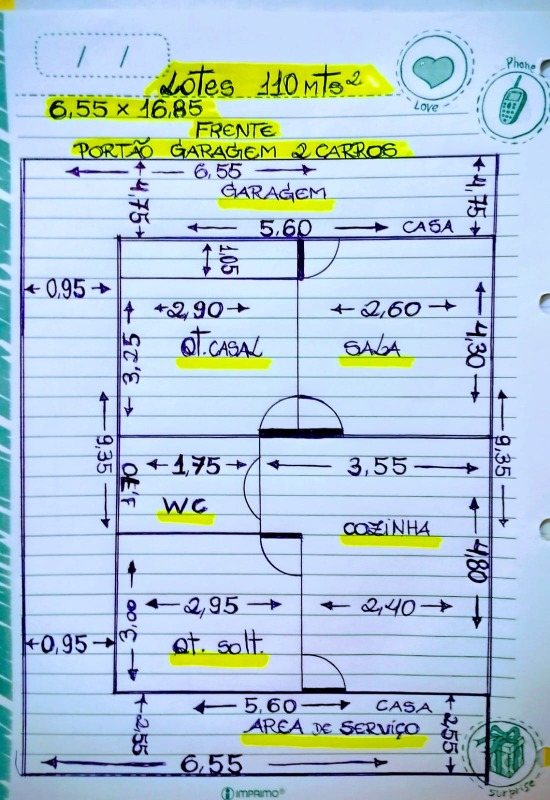 / /
Phone
Lotes 110 mts²
Love
6,55 x 16,85
FRENTE
PORTÃO GARAGEM 2 CARROS
6,55
4,75
4,75
GARAGEM
5,60 CASA
1,05
0,95
2,90 2,60
QT. CASAL SALA
3,25
4,30
9,35
9,35
1,75 3,55
1,70
WC
COZINHA
4,80
2,95 2,40
3,00
QT. SOLT.
0,95
5,60 CASA
2,55
2,55
AREA DE SERVIÇO
6,55
IMPRIMO®
surprise